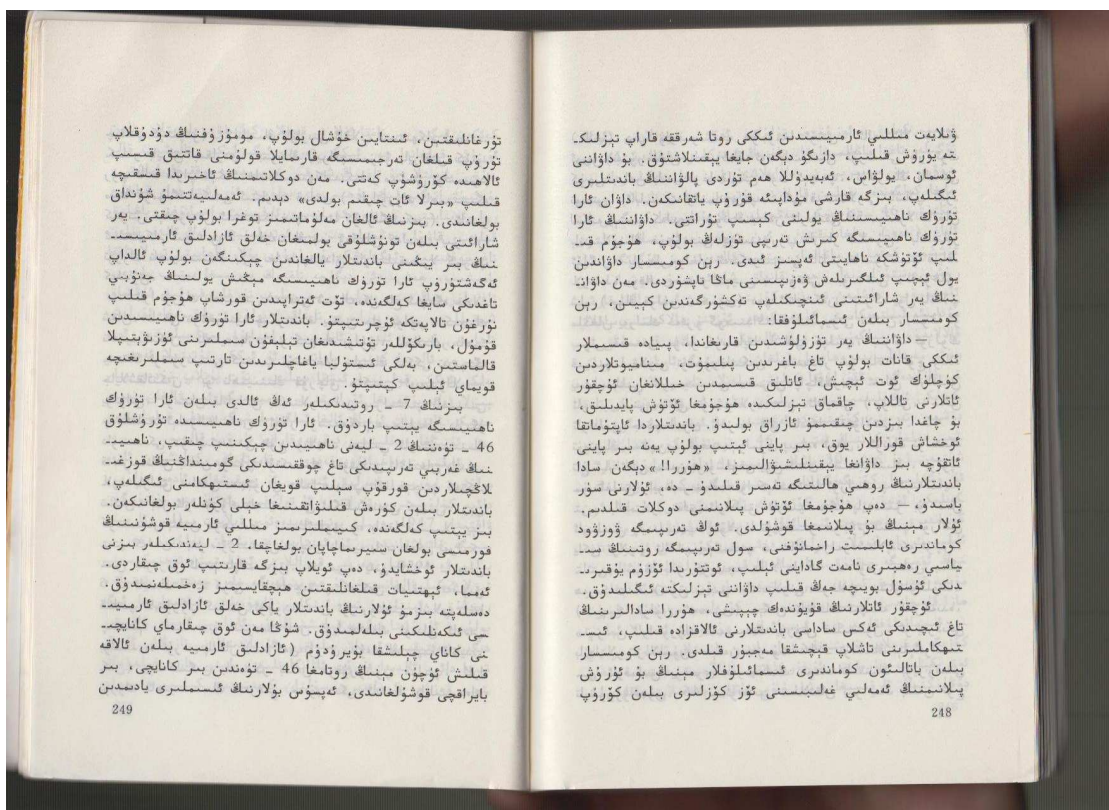 ۋىلايەت مىللىي ئارمىيىسىدىن ئىككى روتا شەرققە قاراپ تېزلىك-
تە يۈرۈش قىلىپ، دازىگۇ دېگەن جايغا يېقىنلاشتۇق. بۇ داۋاننى
ئوسمان، يولۋاس، ئەبەيدۇللا ھەم تۇردى پالۋاننىڭ باندىتلىرى
ئىگىلەپ، بىزگە قارشى مۇداپىئە قۇرۇپ ياتقانىكەن. داۋان ئارا
تۈرۈك ناھىيىسىنىڭ يولىنى كېسىپ تۇراتتى. داۋاننىڭ ئارا
تۈرۈك ناھىيىسىگە كىرىش تەرىپى تۈزلەڭ بولۇپ، ھۇجۇم قى-
لىپ ئۆتۈشكە ناھايىتى ئەپسىز ئىدى. رېن كومىسسار داۋاندىن
يول ئېچىپ ئىلگىرىلەش ۋەزىپىسىنى ماڭا تاپشۇردى. مەن داۋان-
نىڭ يەر شارائىتىنى ئىنچىكىلەپ تەكشۈرگەندىن كېيىن، رېن
كومىسسار بىلەن ئىسمائىلوفقا:
— داۋاننىڭ يەر تۈزۈلۈشىدىن قارىغاندا، پىيادە قىسىملار
ئىككى قانات بولۇپ تاغ باغرىدىن پىلىموت، مىنامىيوتلاردىن
كۈچلۈك ئوت ئېچىش، ئاتلىق قىسىمدىن خىللانغان ئۇچقۇر
ئاتلارنى تاللاپ، چاقماق تېزلىكىدە ھۇجۇمغا ئۆتۈش پايدىلىق،
بۇ چاغدا بىزدىن چىقىممۇ ئازراق بولىدۇ. باندىتلاردا ئاپتوماتقا
ئوخشاش قوراللار يوق، بىر پاينى ئېتىپ بولۇپ يەنە بىر پاينى
ئاتقۇچە بىز داۋانغا يېقىنلىشىۋالىمىز، «ھۇررا!» دېگەن سادا
باندىتلارنىڭ روھىي ھالىتىگە تەسىر قىلىدۇ - دە، ئۇلارنى سۈر
باسىدۇ، — دەپ ھۇجۇمغا ئۆتۈش پىلانىمنى دوكلات قىلدىم.
ئۇلار مېنىڭ بۇ پىلانىمغا قوشۇلدى. ئوڭ تەرىپىمگە ۋوزۋود
كوماندىرى ئابلىست راخمانوفنى، سول تەرىپىمگە روتىنىڭ سى-
ياسىي رەھبىرى نامەت گاداينى ئېلىپ، ئوتتۇرىدا ئۆزۈم يۇقىرى-
دىكى ئۇسۇل بويىچە جەڭ قىلىپ داۋاننى تېزلىكتە ئىگىلىدۇق.
ئۇچقۇر ئاتلارنىڭ قۇيۇندەك چېپىشى، ھۇررا سادالىرىنىڭ
تاغ ئىچىدىكى ئەكس ساداسى باندىتلارنى ئالاقزادە قىلىپ، ئىس-
تىھكاملىرىنى تاشلاپ قېچىشقا مەجبۇر قىلدى. رېن كومىسسار
بىلەن باتالىئون كوماندىرى ئىسمائىلوفلار مېنىڭ بۇ ئۇرۇش
پىلانىمنىڭ ئەمەلىي غەلىبىسىنى ئۆز كۆزلىرى بىلەن كۆرۈپ
248
تۇرغانلىقتىن، ئىنتايىن خۇشال بولۇپ، مومۇزۇفنىڭ دۇدۇقلاپ
تۇرۇپ قىلغان تەرجىمىسىگە قارىمايلا قولۇمنى قاتتىق قىسىپ
ئالاھىدە كۆرۈشۈپ كەتتى. مەن دوكلاتىمنىڭ ئاخىرىدا قىسقىچە
قىلىپ «بىرلا ئات چىقىم بولدى» دېدىم. ئەمەلىيەتتىمۇ شۇنداق
بولغانىدى. بىزنىڭ ئالغان مەلۇماتىمىز توغرا بولۇپ چىقتى. يەر
شارائىتى بىلەن تونۇشلۇقى بولمىغان خەلق ئازادلىق ئارمىيىسى-
نىڭ بىر يىڭىنى باندىتلار يالغاندىن چېكىنگەن بولۇپ ئالداپ
ئەگەشتۈرۈپ ئارا تۈرۈك ناھىيىسىگە مېڭىش يولىنىڭ جەنۇبىي
تاغدىكى سايغا كەلگەندە، تۆت ئەتراپىدىن قورشاپ ھۇجۇم قىلىپ
نۇرغۇن تالاپەتكە ئۇچرىتىپتۇ. باندىتلار ئارا تۈرۈك ناھىيىسىدىن
قۇمۇل، بارىكۆللەر تۇتىشىدىغان تېلېفون سىملىرىنى ئۈزىۋېتىپلا
قالماستىن، بەلكى ئىستولبا ياغاچلىرىدىن تارتىپ سىملىرىغىچە
قويماي ئېلىپ كېتىپتۇ.
بىزنىڭ 7 - روتىدىكىلەر ئەڭ ئالدى بىلەن ئارا تۈرۈك
ناھىيىسىگە يېتىپ باردۇق. ئارا تۈرۈك ناھىيىسىدە تۇرۇشلۇق
46 - تۇەننىڭ 2 - ليەنى ناھىيىدىن چېكىنىپ چىقىپ، ناھىيى-
نىڭ غەربىي تەرىپىدىكى تاغ چوققىسىدىكى گومىنداڭنىڭ قوزغى-
لاڭچىلاردىن قورقۇپ سېلىپ قويغان ئىستىھكامنى ئىگىلەپ،
باندىتلار بىلەن كۈرەش قىلىۋاتقىنىغا خېلى كۈنلەر بولغانىكەن.
بىز يېتىپ كەلگەندە، كىيىملىرىمىز مىللىي ئارمىيە قوشۇنىنىڭ
فورمىسى بولغان سىيرىماچاپان بولغاچقا. 2 - ليەندىكىلەر بىزنى
باندىتلار ئوخشايدۇ، دەپ ئويلاپ بىزگە قارىتىپ ئوق چىقاردى.
ئەمما، ئېھتىيات قىلغانلىقتىن ھېچقايسىمىز زەخمىلەنمىدۇق.
دەسلەپتە بىزمۇ ئۇلارنىڭ باندىتلار ياكى خەلق ئازادلىق ئارمىيى-
سى ئىكەنلىكىنى بىلەلمىدۇق. شۇڭا مەن ئوق چىقارماي كانايچى-
نى كاناي چېلىشقا بۇيرۇدۇم (ئازادلىق ئارمىيە بىلەن ئالاقە
قىلىش ئۈچۈن مېنىڭ روتامغا 46 - تۇەندىن بىر كانايچى، بىر
بايراقچى قوشۇلغانىدى، ئەپسۇس بۇلارنىڭ ئىسىملىرى يادىمدىن
249